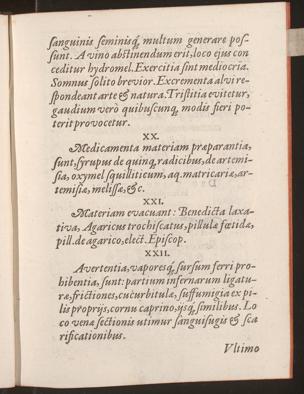 sanguinis seminisq́; multum generare pos-
sunt. A vino abstinendum erit, loco ejus con
ceditur hydromel. Exercitia sint mediocria.
Somnus solito brevior. Excrementa alvi re-
spondeant arte & natura. Tristitia evitetur,
gaudium verò quibuscunq; modis fieri po-
terit provocetur.
XX.
Medicamenta materiam præparantia,
sunt, syrupus de quinq; radicibus, de artemi-
sia, oxymel squilliticum, aq. matricariæ, ar-
temisiæ, melissæ, &c.
XXI.
Materiam evacuant: Benedicta laxa-
tiva, Agaricus trochiscatus, pillulæ fœtidæ,
pill. de agarico, elect. Episcop.
XXII.
Avertentia, vaporesq́; sursum ferri pro-
hibentia, sunt: partium infernarum ligatu-
ræ, frictiones, cucurbitulæ, suffumigia ex pi-
lis proprijs, cornu caprino, ijsq́; similibus. Lo
co venæ sectionis utimur sanguisugis & sca
rificationibus.
Vltimo